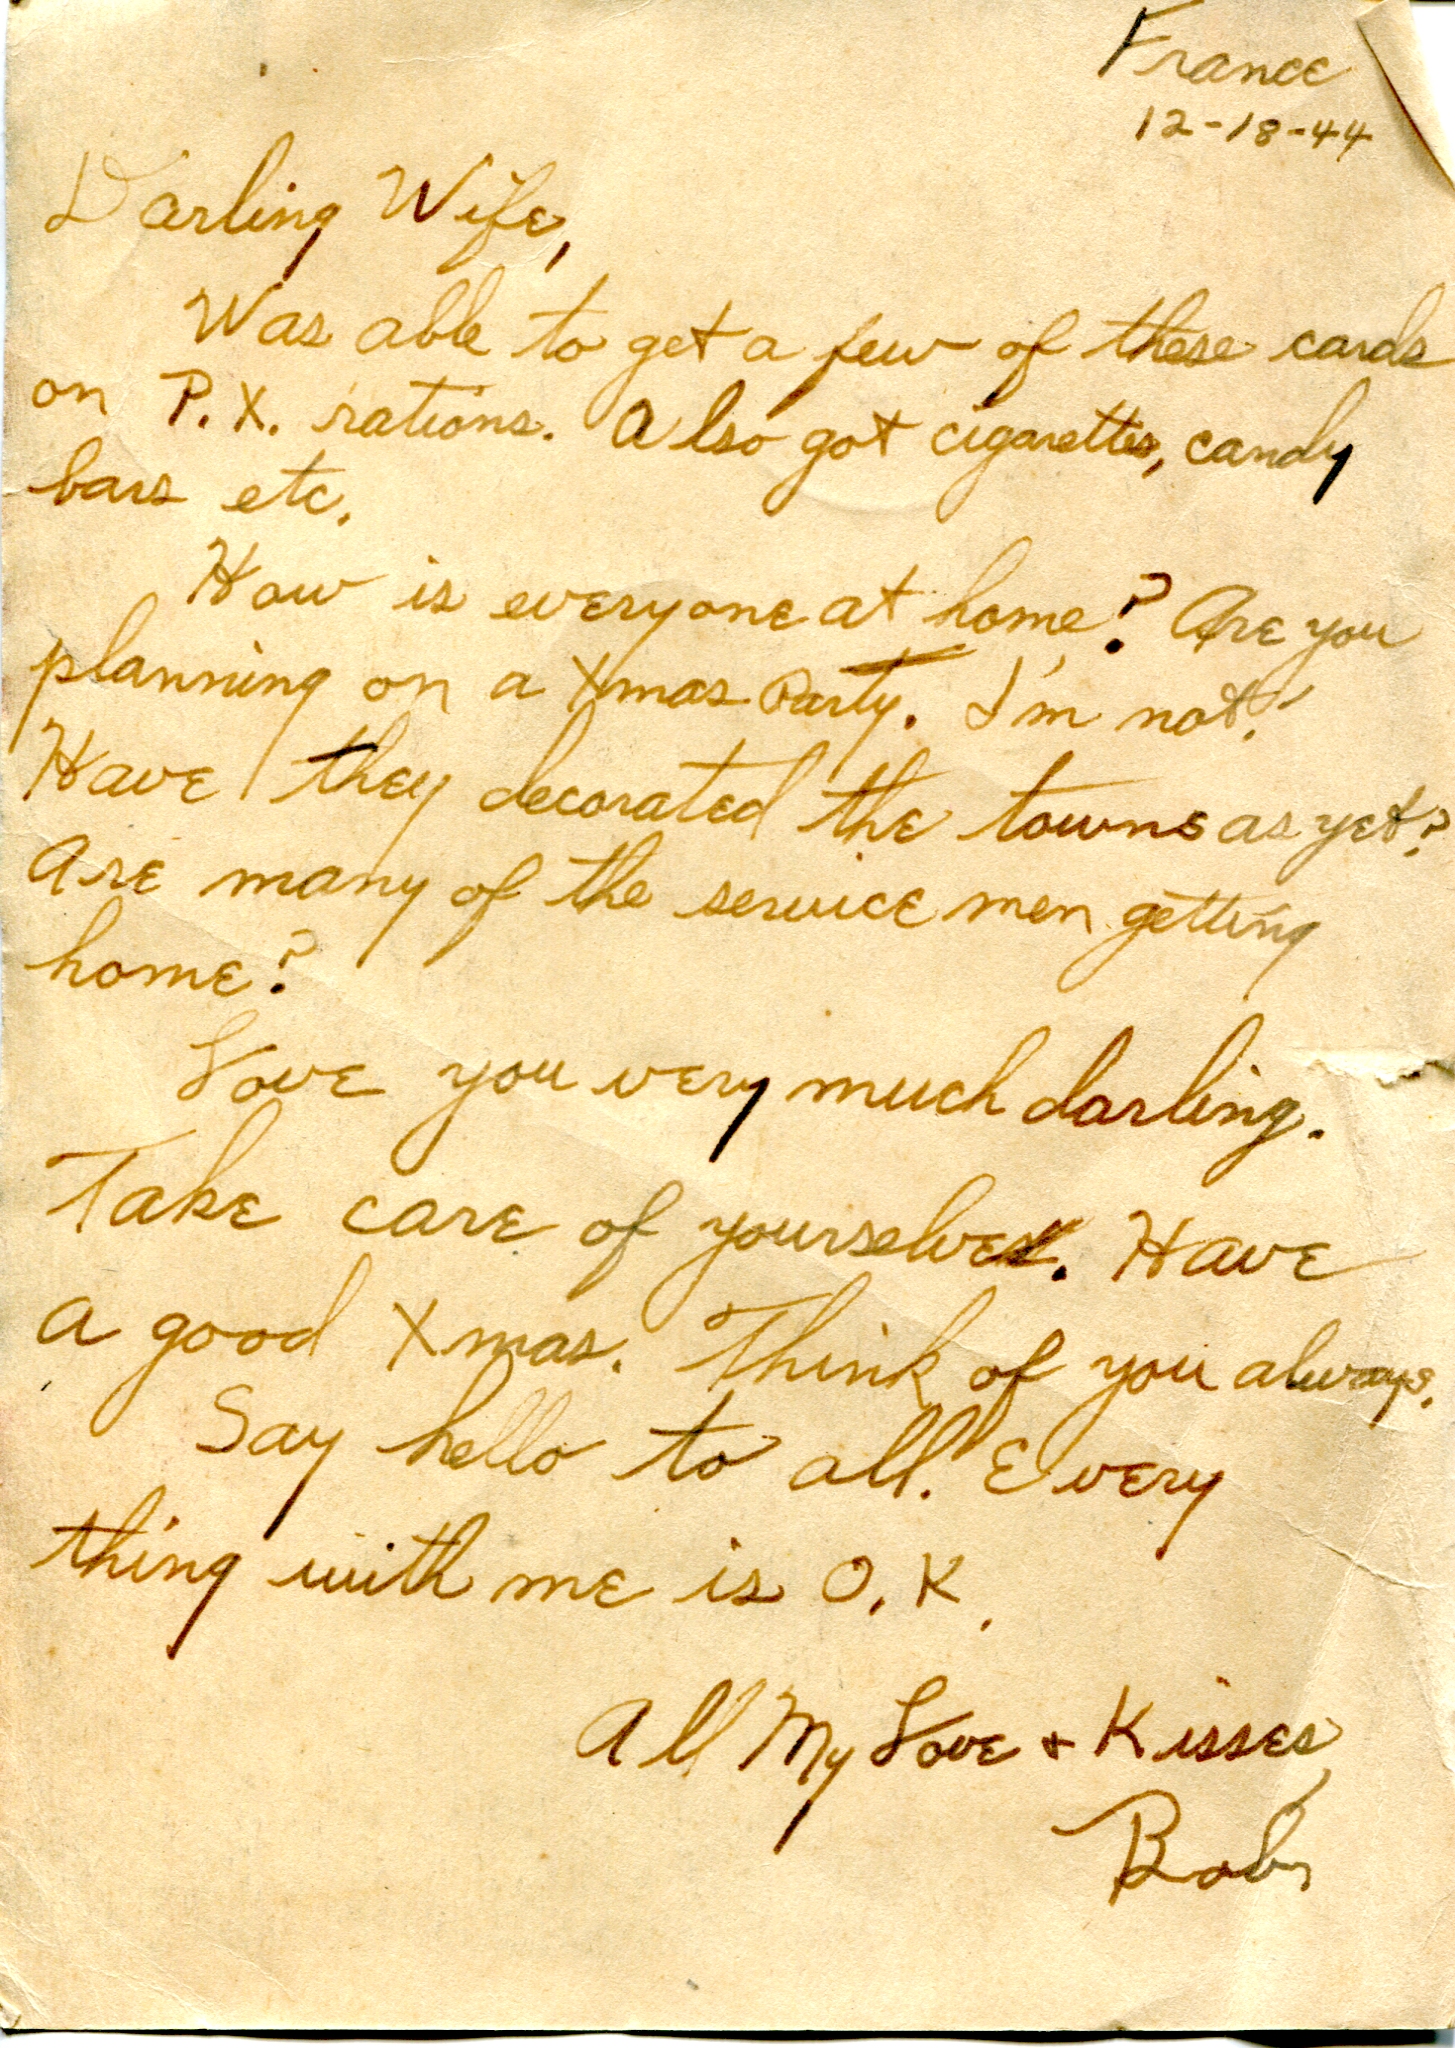 France
12-18-44
Darling Wife,
Was able to get a few of these cards
on P.X. rations. Also got cigarettes, candy
bars etc.
How is everyone at home? Are you
planning on a Xmas Party. I'm not.
Have they decorated the towns as yet?
Are many of the service men getting
home?
Love you very much darling.
Take care of yourselves. Have
a good Xmas. Think of you always.
Say hello to all. Every
thing with me is O.K.
All My Love + Kisses,
Bob